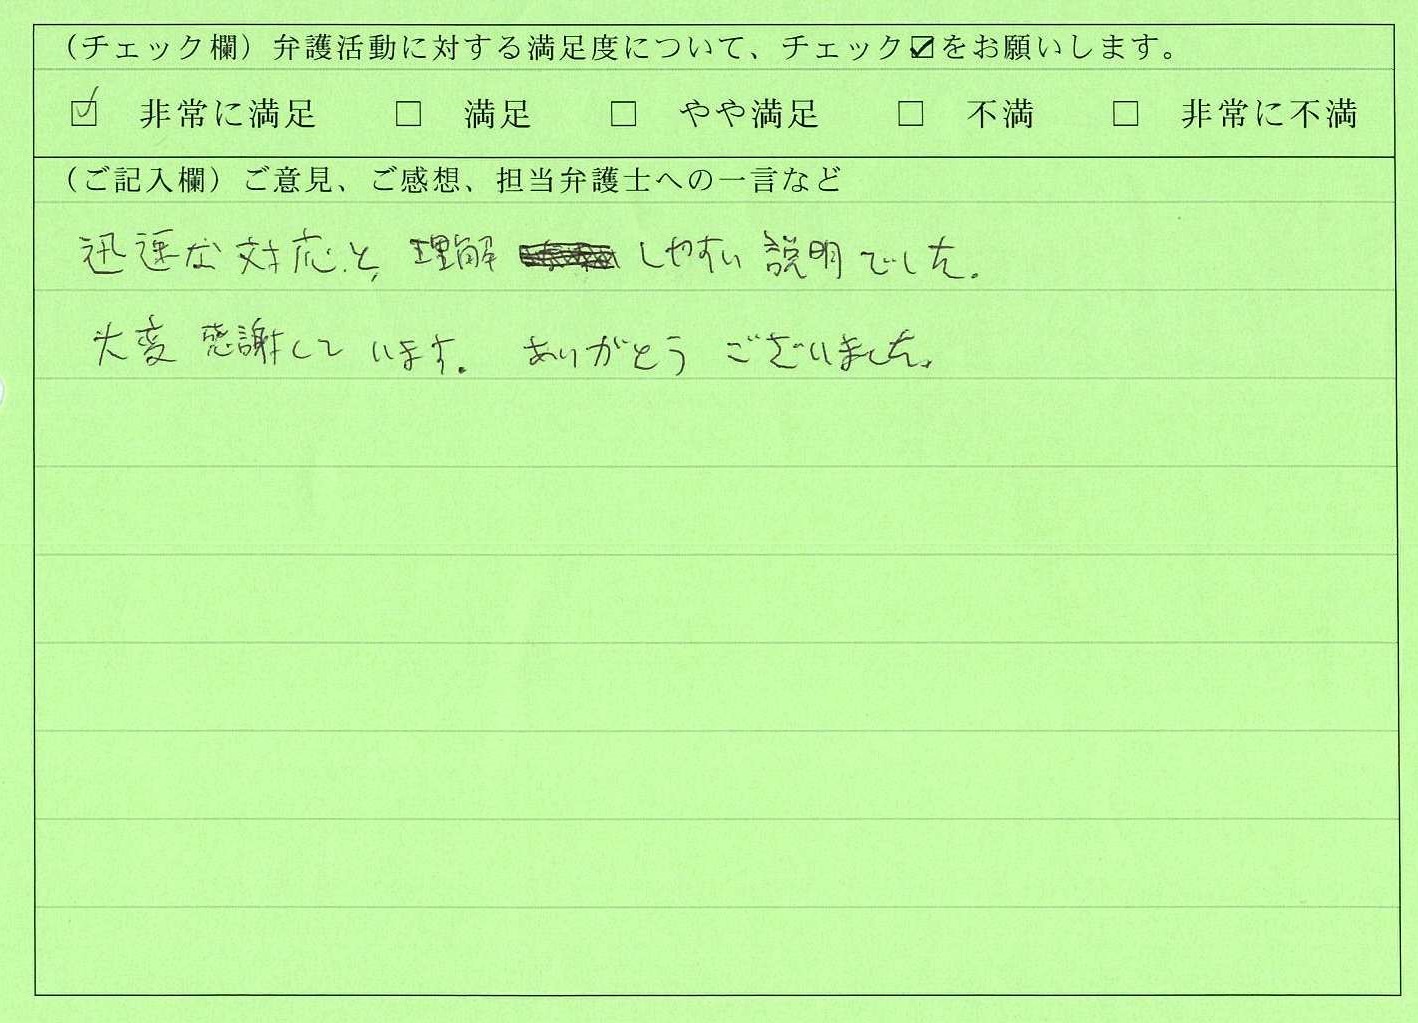 （チェック欄）弁護活動に対する満足度について、チェック☑をお願いします。
☑ 非常に満足 □ 満足 □ やや満足 □ 不満 □ 非常に不満
（ご記入欄）ご意見、ご感想、担当弁護士への一言など
迅速な対応と、理解 しやすい 説明でした。
大変 感謝して います。 ありがとう ございました。